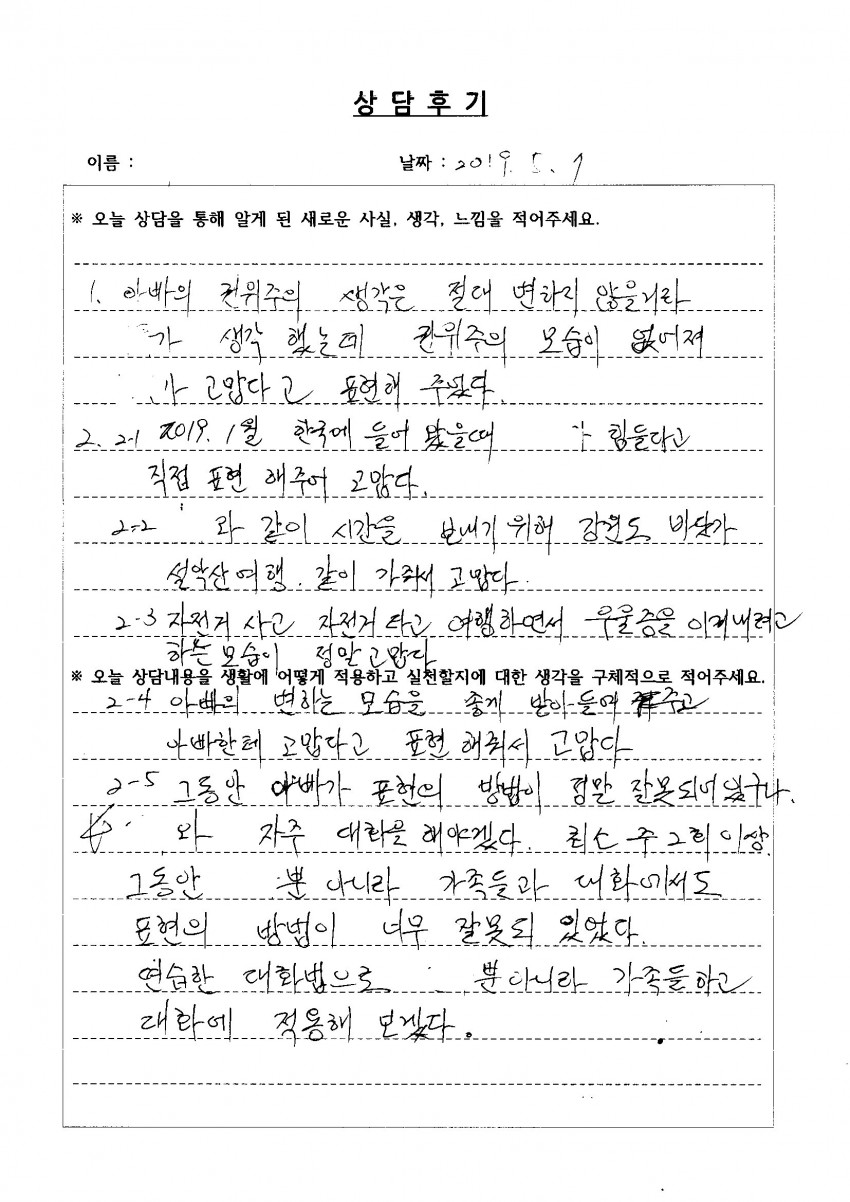 상 담 후 기
이름 :
날짜 : 2019. 5. 7
※ 오늘 상담을 통해 알게 된 새로운 사실, 생각, 느낌을 적어주세요.
1. 아빠의 권위주의 생각은 절대 변하지 않을거라
가 생각 했는데 권위주의 모습이 없어져
가 고맙다고 표현해 주었다.
2. 2-1 2019. 1월 한국에 들어 왔을때 힘들다고
직접 표현 해주어 고맙다.
2-2 와 같이 시간을 보내기 위해 강원도 바닷가
설악산 여행. 같이 가줘서 고맙다.
2-3 자전거 사고 자전거 타고 여행하면서 우울증을 이겨내려고
하는 모습이 정말 고맙다
※ 오늘 상담내용을 생활에 어떻게 적용하고 실천할지에 대한 생각을 구체적으로 적어주세요.
2-4 아빠의 변하는 모습을 좋게 받아들여 주고
아빠한테 고맙다고 표현 해줘서 고맙다
2-5 그동안 아빠가 표현의 방법이 정말 잘못되어 있구나.
와 자주 대화을 해야겠다. 최소 주 2회 이상.
그동안 뿐 아니라 가족들과 대화에서도
표현의 방법이 너무 잘못되 있었다.
연습한 대화법으로 뿐아니라 가족들하고
대화에 적용해 보겠다.